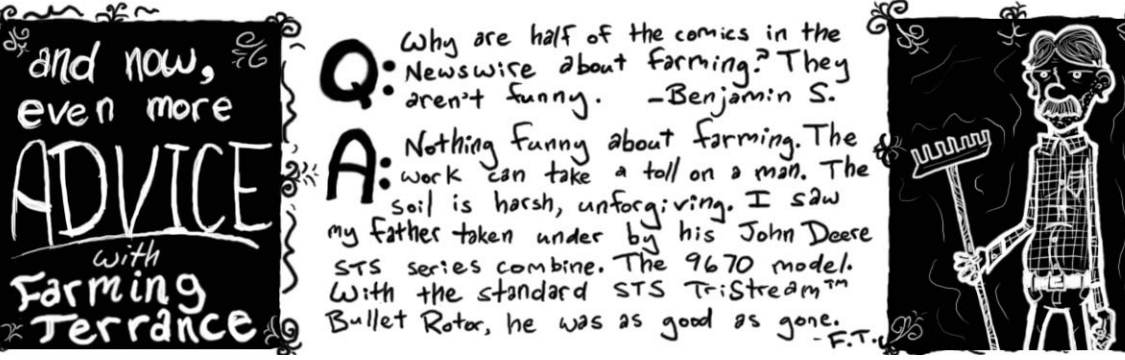 and now,
even more
ADVICE
with
Farming
Terrance
Q: Why are half of the comics in the
Newswire about farming? They
aren't funny. -Benjamin S.
A: Nothing funny about farming. The
work can take a toll on a man. The
soil is harsh, unforgiving. I saw
my father taken under by his John Deere
STS series combine. The 9670 model.
With the standard STS TriStream™
Bullet Rotor, he was as good as gone.
-F.T.